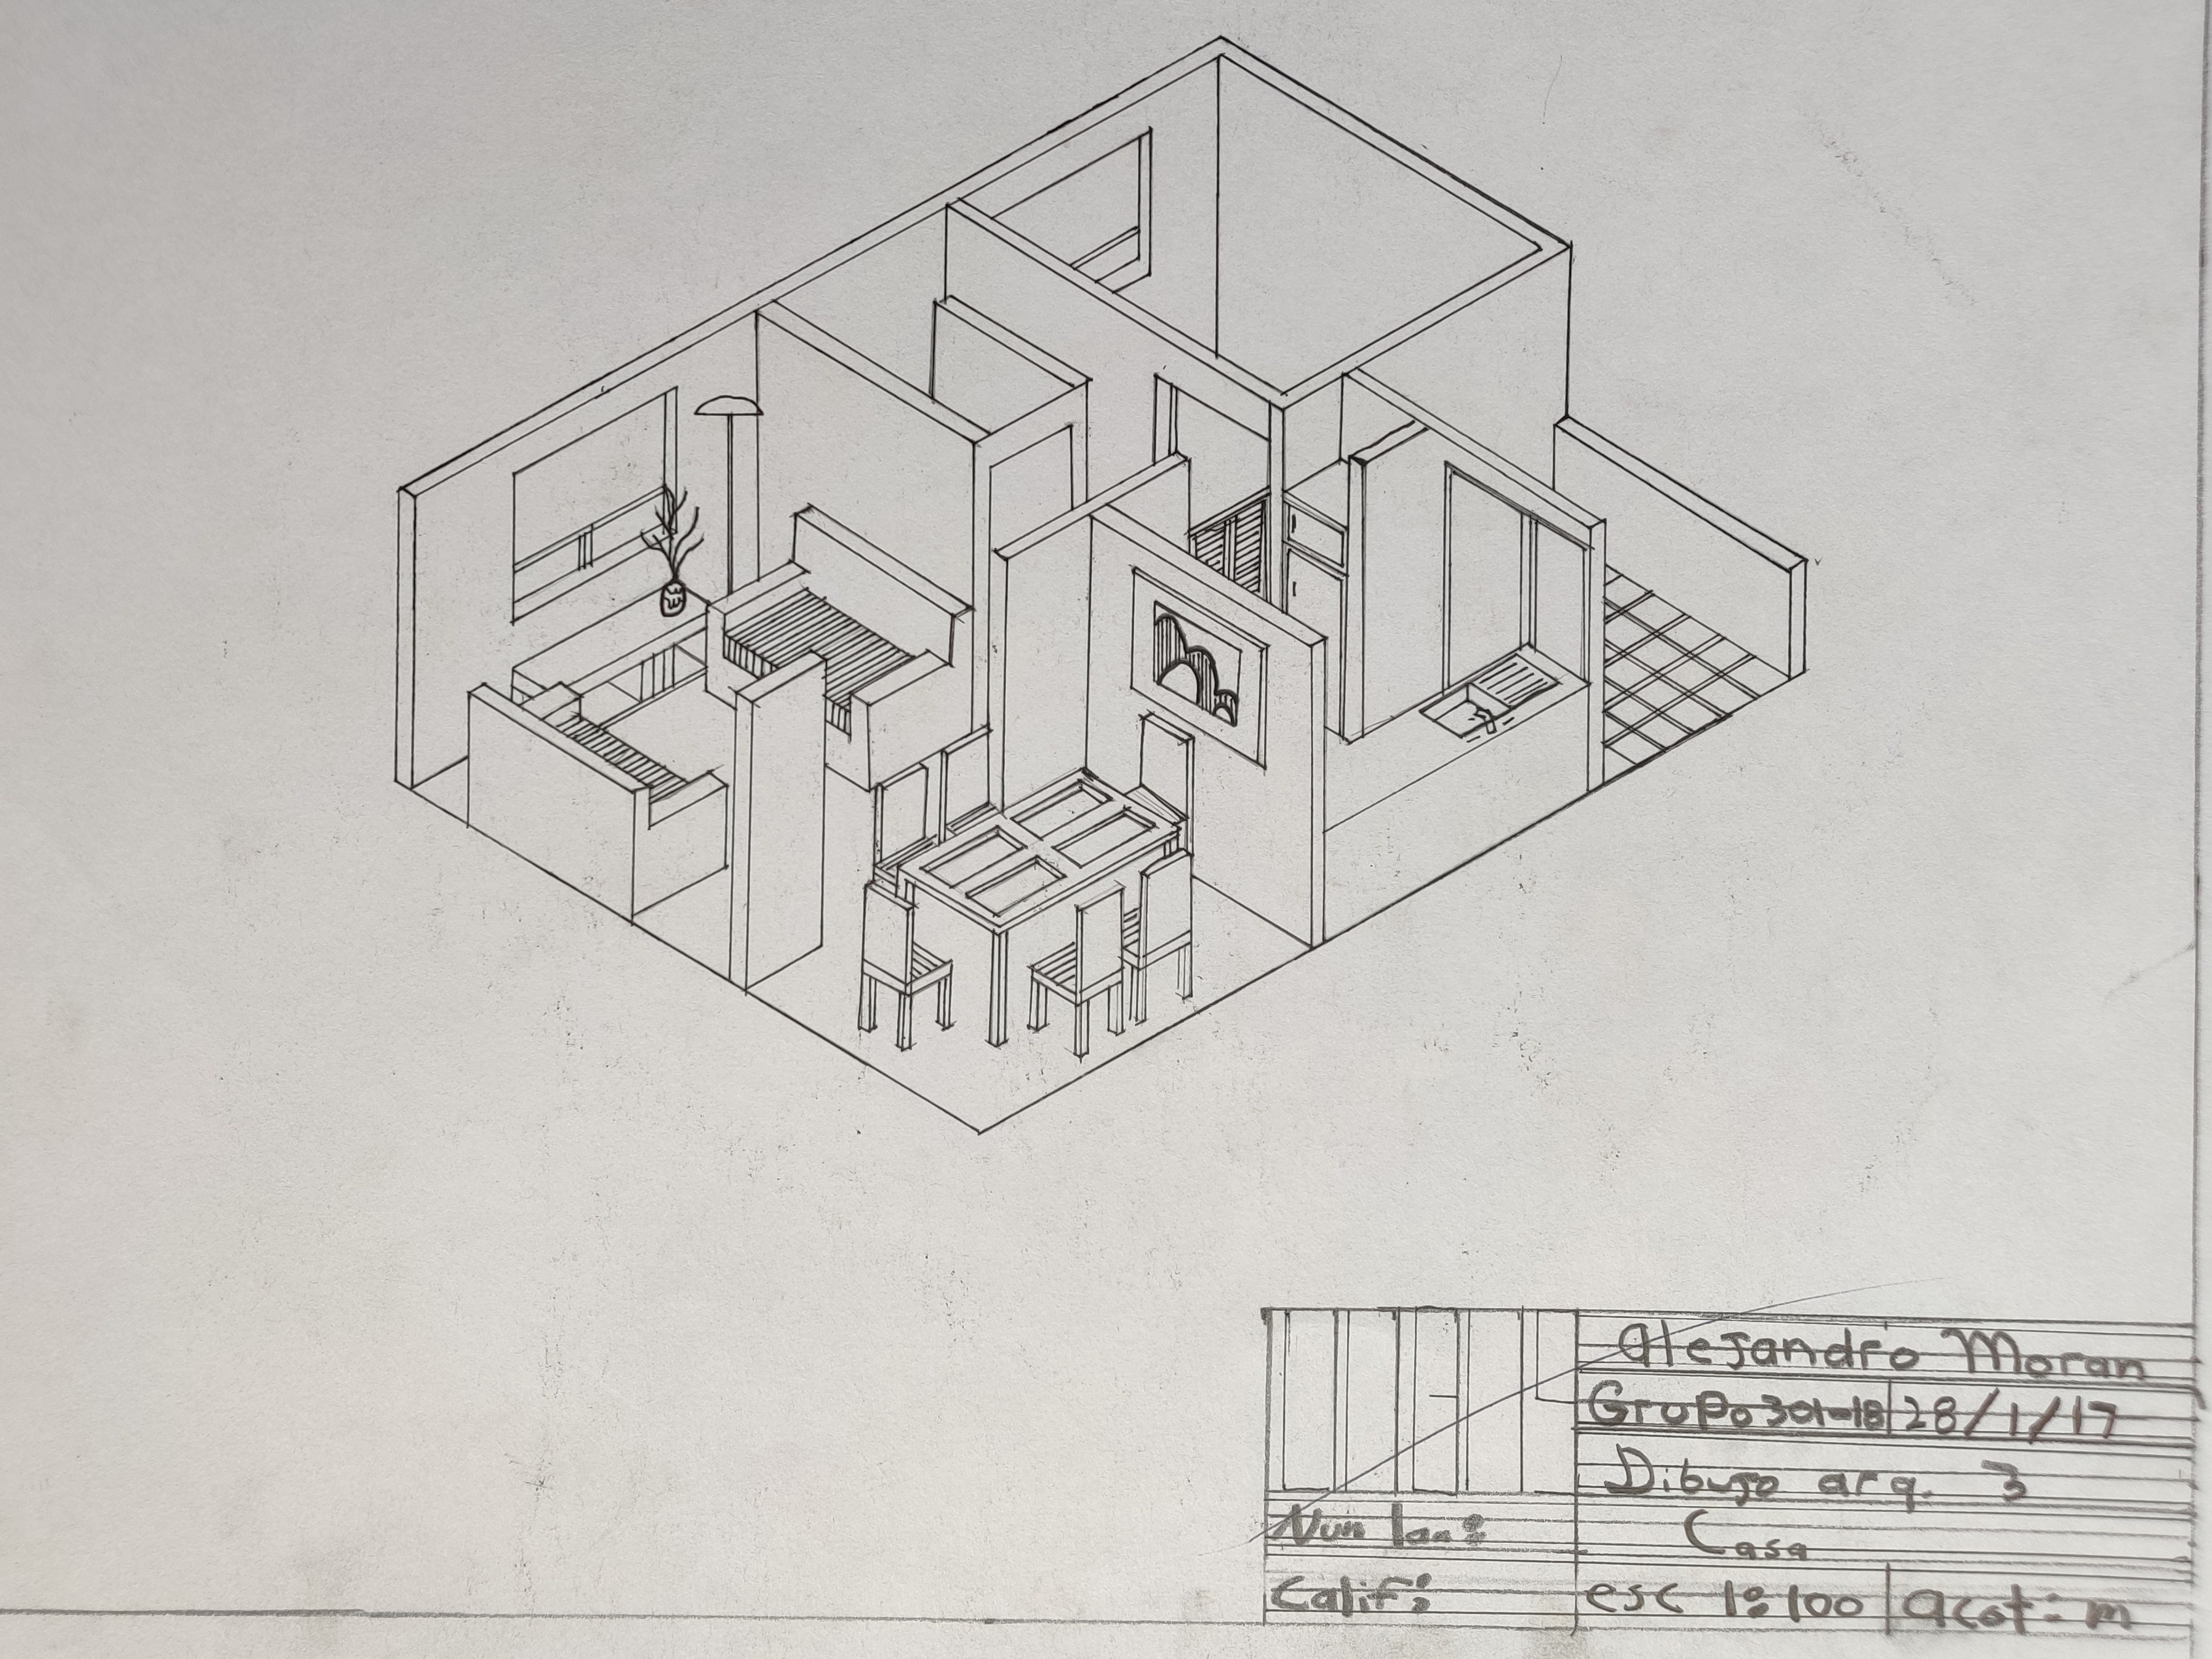 Alejandro Moran
Grupo 301-18 28/1/17
Dibujo arq. 3
Num lam:
Casa
Calif:
esc 1:100 acot: m